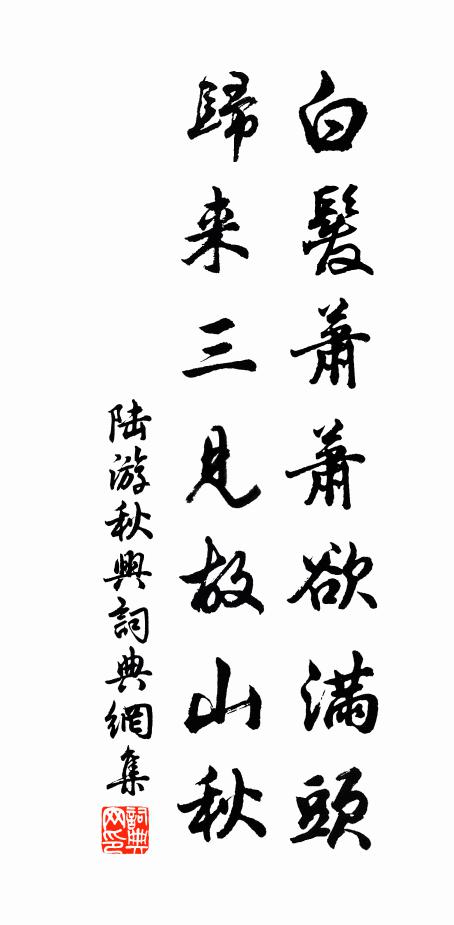 白髮蕭蕭欲滿頭
歸来三見故山秋
陆游秋興詞典網集
詞典
网印